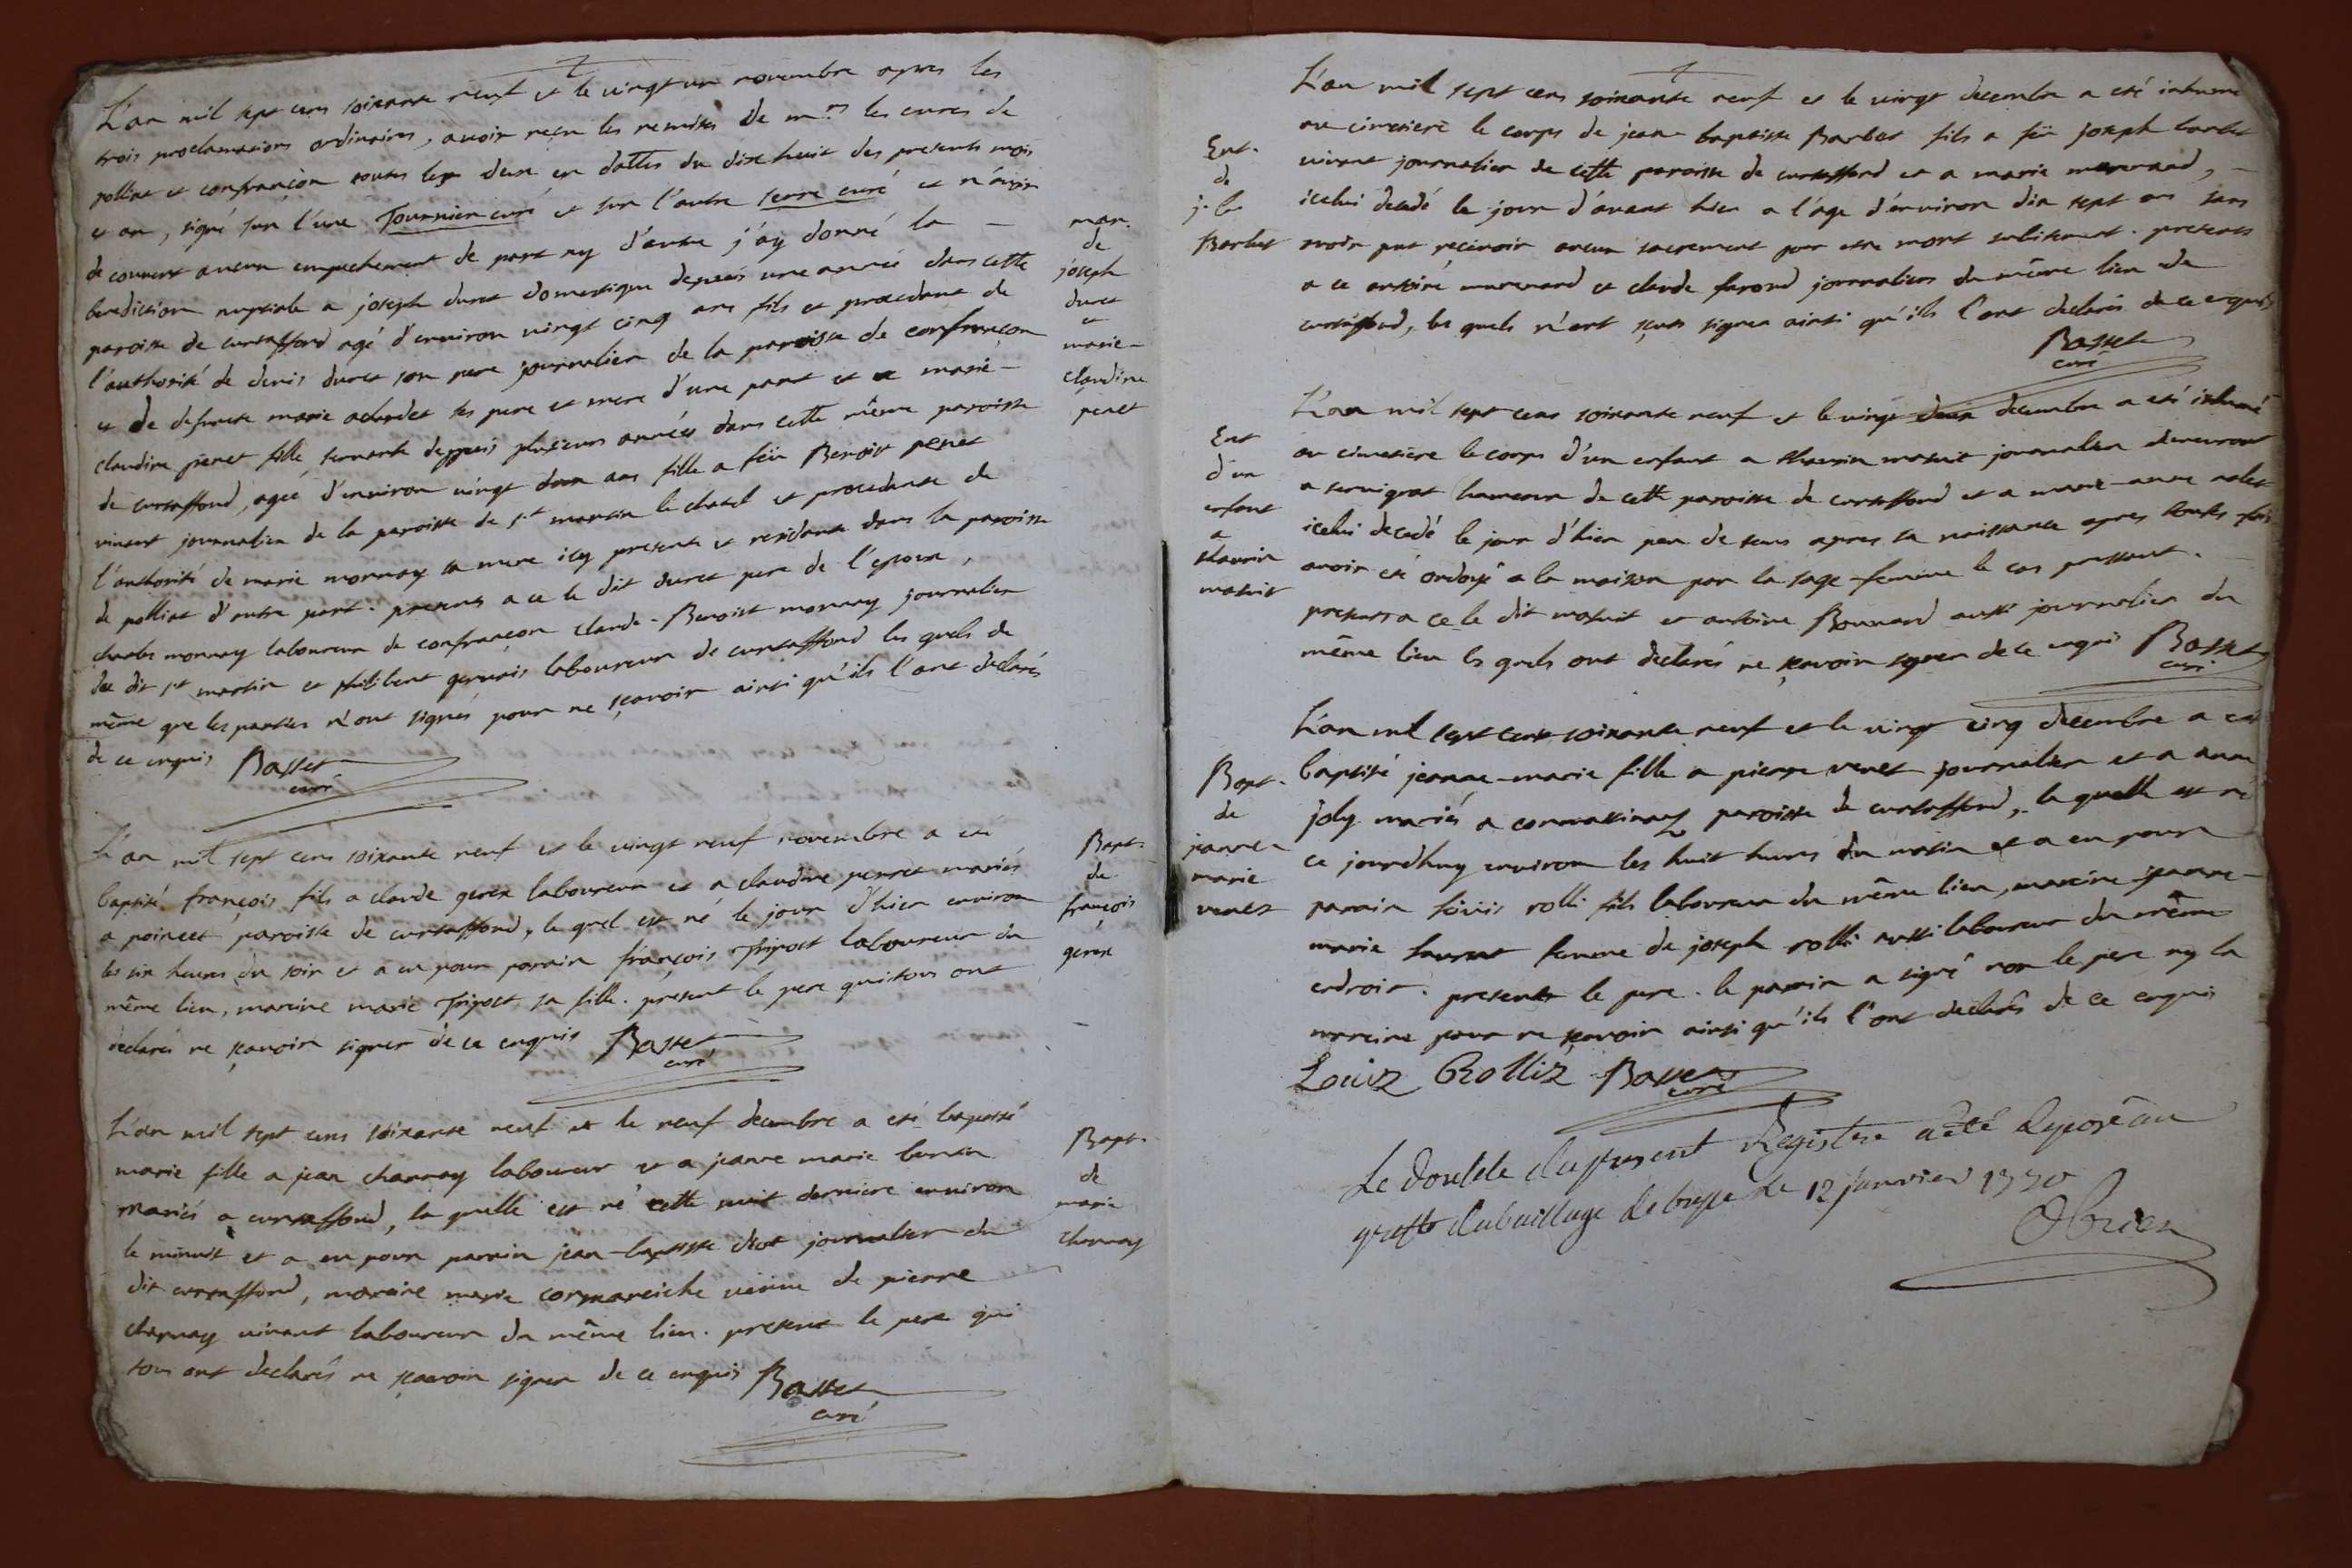 L'an mil sept cens soixante neuf et le vingt un novembre apres les
trois proclamations ordinaires, avoir reçu les remises de mrs les curés de
polliat et confrançon toutes les deux en dattes du dixe huit des presents mois
et an, signé sur l'une Tournier curé et sur l'autre Serre curé et n'avoir
decouvert aucun empechement de part ny d'autre j'ay donné la
benediction nuptiale a joseph duret domestique depuis une année dans cette
paroisse de curtaffond agé d'environ vingt cinq ans fils et procedant de
l'authorité de denis duret son pere journalier de la paroisse de confrançon
et de defuncte marie ses pere et mere d'une part et a marie
claudine penet fille, servante deppuis plusieurs années dans cette même paroisse
de curtaffond, ageé d'environ vingt deux ans fille a feü Benoist penet
vivant journalier de la paroisse de st martin le chatel et procedante de
l'authorité de marie monnay sa mere icy presente et residante dans la paroisse
de polliat d'autre part. presents a ce le dit duret pere de l'epoux,
charles monnay laboureur de confrançon claude-Benoist monnay journalier
du dit st martin et philibert gervais laboureur de curtaffond les quels de
même que les parties n'ont signés pour ne sçavoir ainsi qu'ils l'ont declarés
de ce enquis Basset
curé
mar.
de
joseph
duret
et
marie-
claudine
penet
L'an mil sept cens soixante neuf et le vingt neuf novembre a eté
baptisé françois fils a claude gerex laboureur et a claudine perret mariés
a poincet paroisse de curtaffond, le quel est né le jour d'hier environ
les six heures du soir et a eu pour parain françois Tripost laboureur du
même lieu, mareine marie Tripost sa fille. présent le pere qui tous ont
declarés ne sçavoir signer de ce enquis Basset
curé
Bapt.
de
françois
gerex
L'an mil sept cens soixante neuf et le neuf decembre a eté baptisé
marie fille a jean charnay laboureur et a jeanne marie
mariés a curtaffond, la quelle est né cette nuit derniere environ
le minuit et a eu pour parain jean-baptiste journalier du
dit curtaffond, mareine marie cormareiche veüve de pierre
charnay vivant laboureur du même lieu. present le pere qui
tous ont declarés ne sçavoir signer de ce enquis Basset
curé
Bapt.
de
marie
charnay
L'an mil sept cens soixante neuf et le vingt decembre a eté inhumé
au cimetiere le corps de jean-baptiste Barbet fils a feü joseph barbet
vivant journalier de cette paroisse de curtaffond et a marie marenard,
icelui decedé le jour d'avant hier a l'age d'environ dix sept ans sans
avoir put recevoir aucun sacrement pour etre mort subitement. presents
a ce antoine marenard et claude farond journaliers du même lieu de
curtaffond, les quels n'ont sçus signer ainsi qu'ils l'ont declarés de ce enquis
Basset
curé
Ent.
de
j. ba
Barbet
L'an mil sept cens soixante neuf et le vingt deux decembre a eté inhumé
au cimetiére le corps d'un enfant a thaurin matuit journalier demeurant
a servignat hameau de cette paroisse de curtaffond et a marie-anne
icelui decedé le jour d'hier peu de tems apres sa naissance apres toutes fois
avoir eté ondoyé a la maison par la sage-femme le cas pressant.
presents a ce le dit matuit et antoine Bonnard aussi journalier du
même lieu les quels ont declarés ne sçavoir signer de ce enquis Basset
curé
Ent
d'un
enfant
a
thaurin
matuit
L'an mil sept cens soixante neuf et le vingt cinq decembre a eté
baptisé jeanne-marie fille a pierre venet journalier et a anne
joly mariés a cormassinay paroisse de curtaffond, la quelle est né
ce jourdhuy environ les huit heures du matin et a eu pour
parain löuis rolli fils laboureur du même lieu, mareine jeanne-
marie laurent femme de joseph rolli aussi laboureur du même
endroit. present le pere. le parain a signé non le pere ny la
mareine pour ne sçavoir ainsi qu'ils l'ont declarés de ce enquis
Louiz Rolliz Basset
curé
Bapt.
de
jeanne
marie
venet
Le double du present Registre a été deposé au
greffe du bailliage de bresse Le 12 janvier 1770
Obrien